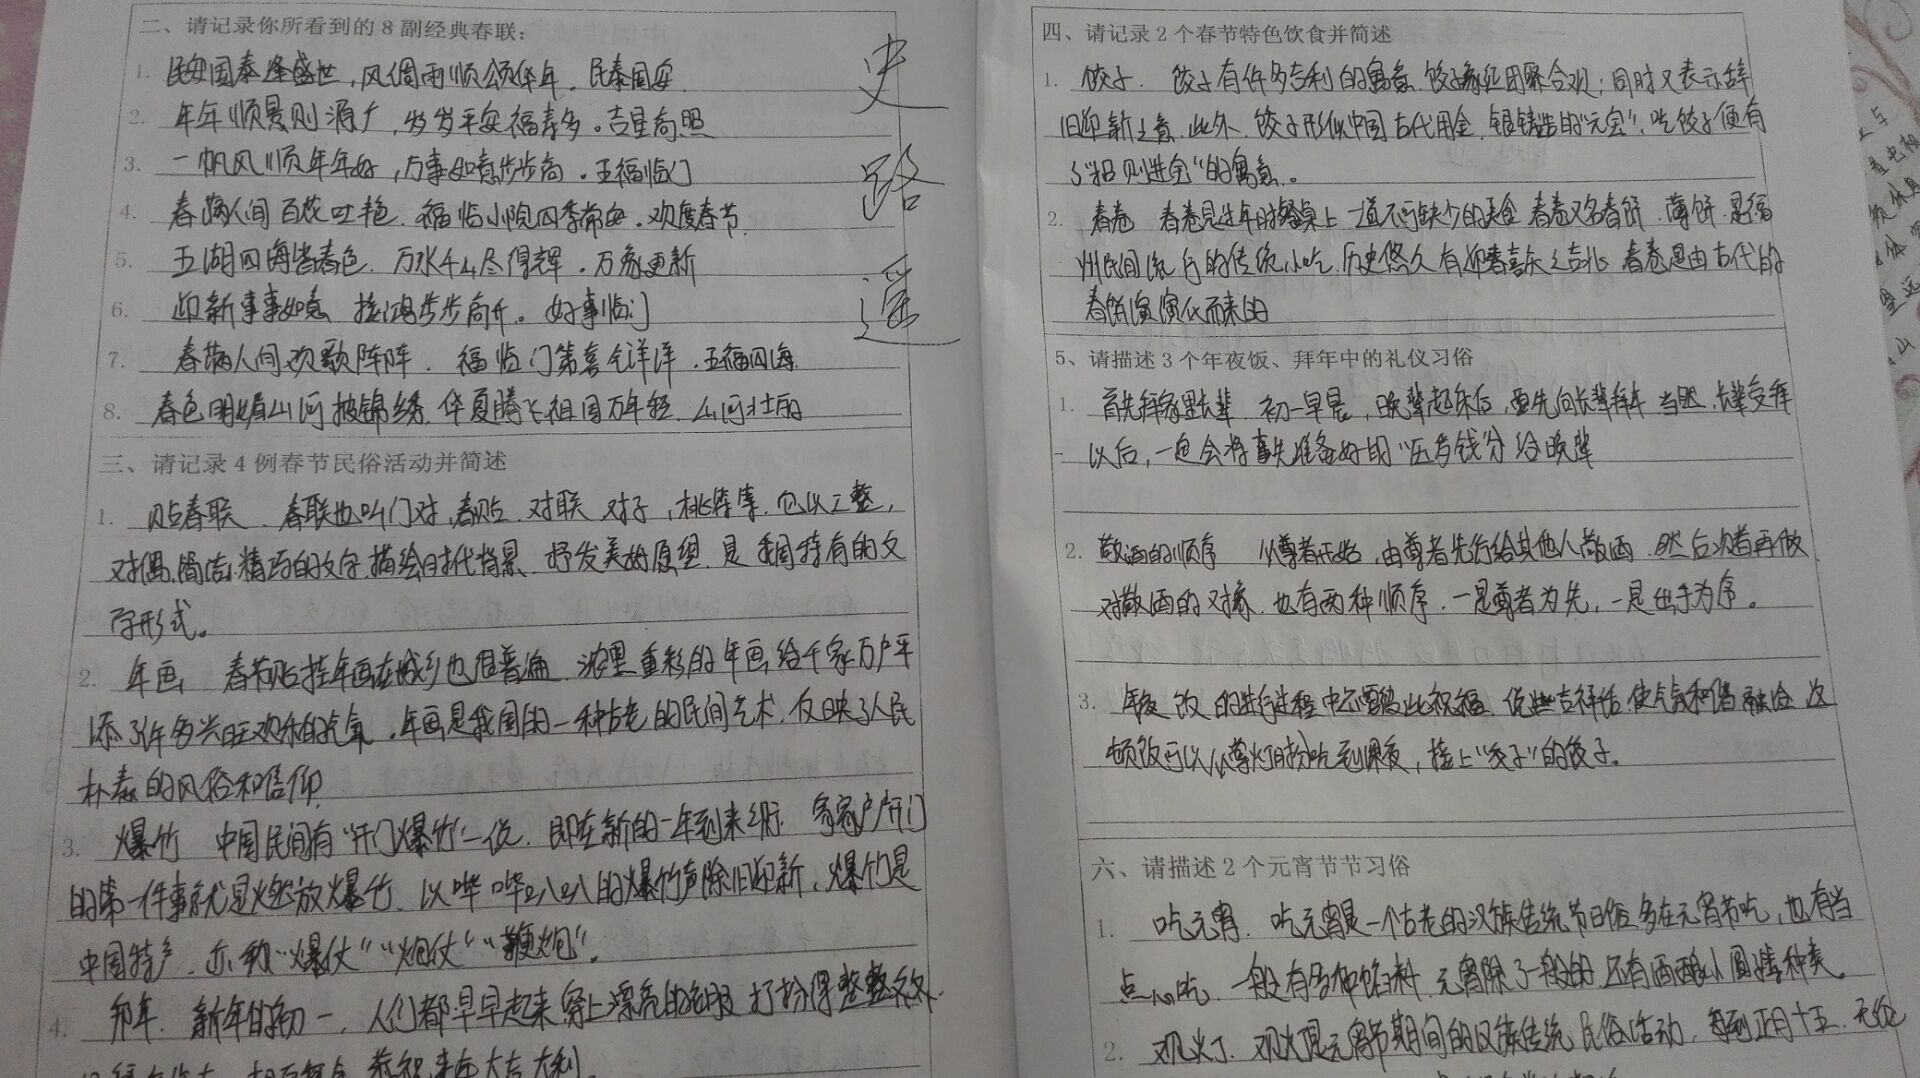 二、请记录你所看到的8副经典春联：
1. 民安国泰逢盛世，风调雨顺颂华年。民泰国安
2. 年年顺景则源广，岁岁平安福寿多。吉星高照
3. 一帆风顺年年好，万事如意步步高。五福临门
4. 春满人间百花吐艳．福临小院四季常安．欢度春节
5. 五湖四海皆春色．万水千山尽得辉．万象更新
6. 迎新事事如意 接鸿步步高升。好事临门
7. 春满人间欢歌阵阵．福临门第喜气洋洋．五福四海
8. 春色明媚山河披锦绣．华夏腾飞祖国万年轻．山河壮丽
史路遥
三、请记录4例春节民俗活动并简述
1. 贴春联．春联也叫门对，春贴．对联 对子，桃符等．它以工整，
对偶．简洁．精巧的文字．描绘时代背景．抒发美好愿望．是我国特有的文
字形式。
2. 年画，春节贴挂年画在城乡也很普遍．浓墨重彩的年画给千家万户平
添了许多兴旺欢乐的气氛．年画是我国的一种古老的民间艺术．反映了人民
朴素的风俗和信仰
3. 爆竹 中国民间有“开门爆竹”一说．即在新的一年到来之际．家家户户开门
的第一件事就是燃放爆竹．以哔哔叭叭的爆竹声除旧迎新．爆竹是
中国特产．亦称“爆仗”“炮仗”“鞭炮”。
4. 拜年．新年的初一，人们都早早起来穿上漂亮的 打扮得整整齐齐．
恭祝来年大吉大利．
四、请记录2个春节特色饮食并简述
1. 饺子．饺子有许多吉利的寓意．饺子象征团聚合欢；同时又表示辞
旧迎新之意．此外．饺子形似中国古代用金．银铸造的“元宝”．吃饺子便有
了“招则进宝”的寓意。
2. 春卷 春卷是过年时餐桌上一道不可缺少的美食 春卷又名春饼．薄饼．是福
州民间流行的传统小吃．历史悠久有迎春喜庆之吉兆 春卷是由古代的
春饼演演化而来的
5、请描述3个年夜饭、拜年中的礼仪习俗
1. 首先拜家里长辈 初一早晨，晚辈起床后，要先向长辈拜年 当然．长辈受拜
以后，一定会将事先准备好的“压岁钱”分给晚辈
2. 敬酒的顺序 从尊者开始，由尊者先行给其他人敬酒．然后次者再做
对敬酒的对象．也有两种顺序．一是尊者为先，一是 为序。
3. 年夜饭的进行过程中还需彼此祝福．说些吉祥话 使气氛和谐融洽 这
顿饭可以从 时分吃到深夜，接上“交子”的饺子。
六、请描述2个元宵节节习俗
1. 吃元宵．吃元宵是一个古老的汉族传统节日俗 多在元宵节吃，也有当
点心吃．一般有多种馅料．元宵除了一般的 还有酒酿小圆 种类。
2. 观灯．观灯是元宵节期间的汉族传统民俗活动，每到正月十五．无论